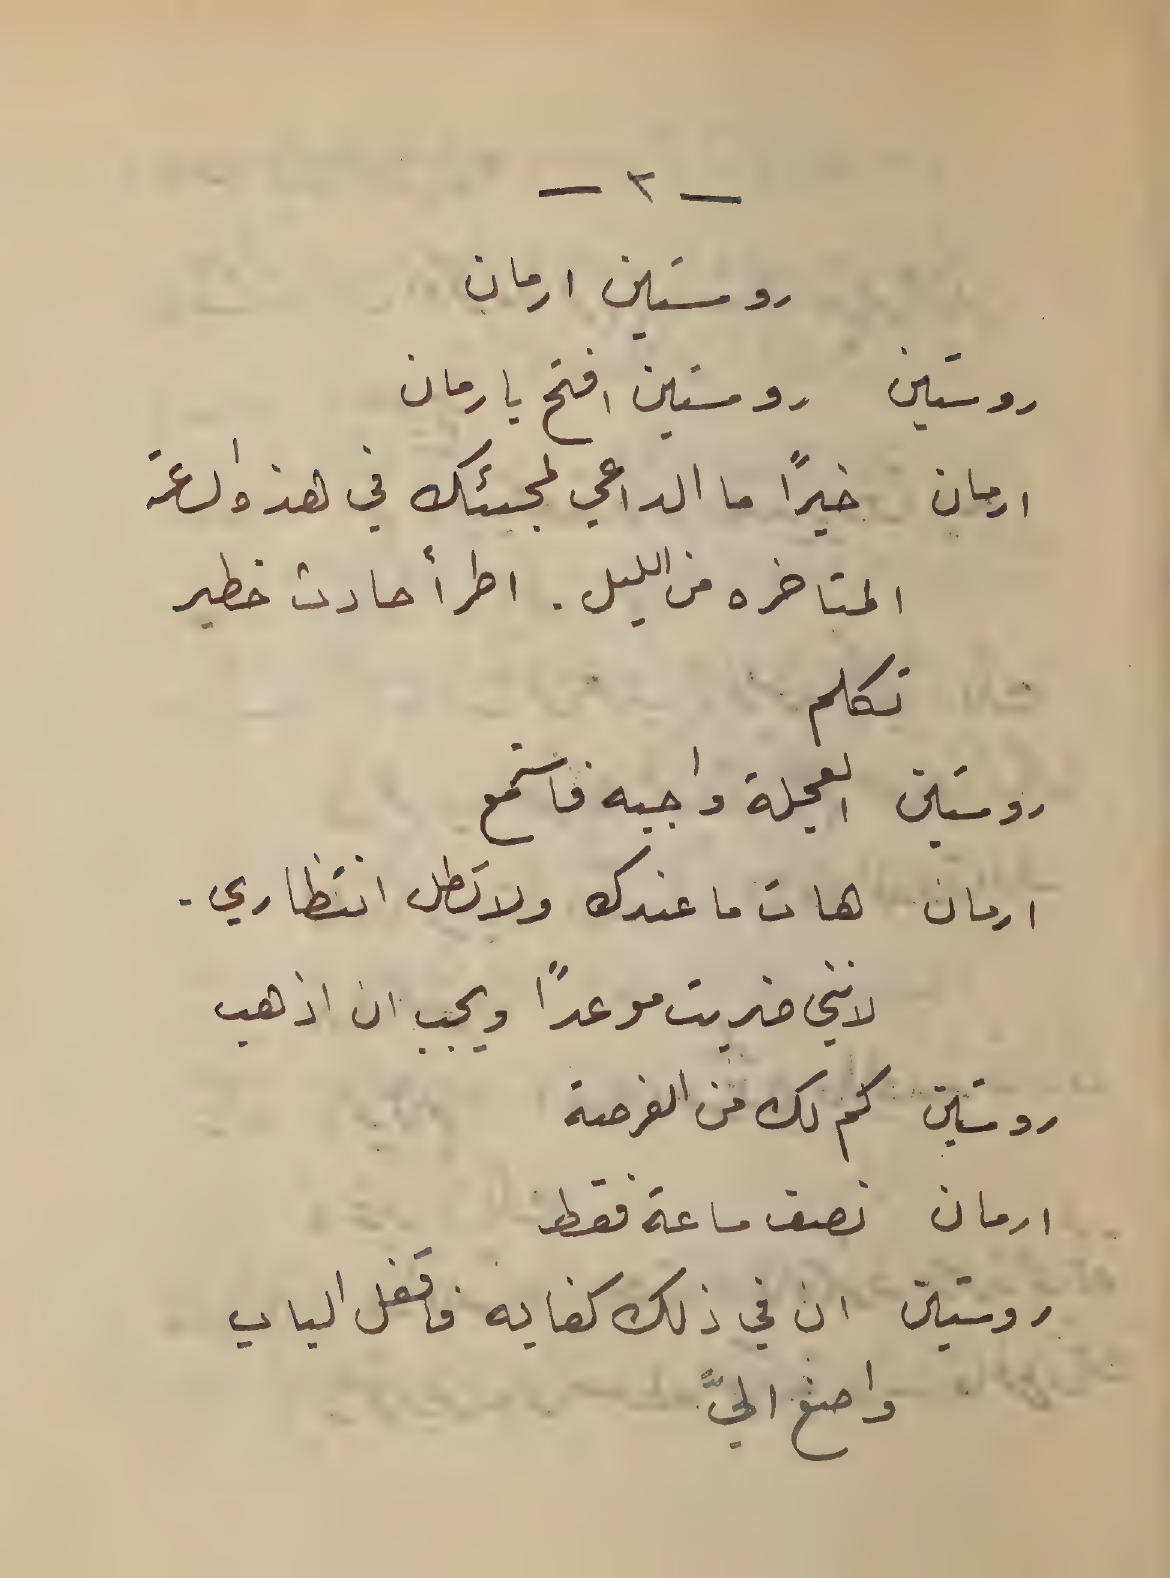 — ٢ —
روستين ارمان
روستين روستين افتح يا رمان
ارمان خيرًا ما الداعي لمجيئك في هذه الساعة
المتاخره من الليل . اطرأ حادث خطير
تكلم
روستين العجلة واجبه فاستمع
ارمان هات ما عندك ولا تطل انتظاري .
لانني ضربت موعدًا ويجب ان اذهب
روستين كم لك من الفرصة
ارمان نصف ساعة فقط
روستين ان في ذلك كفايه فاقفل الباب
واصغ اليَّ